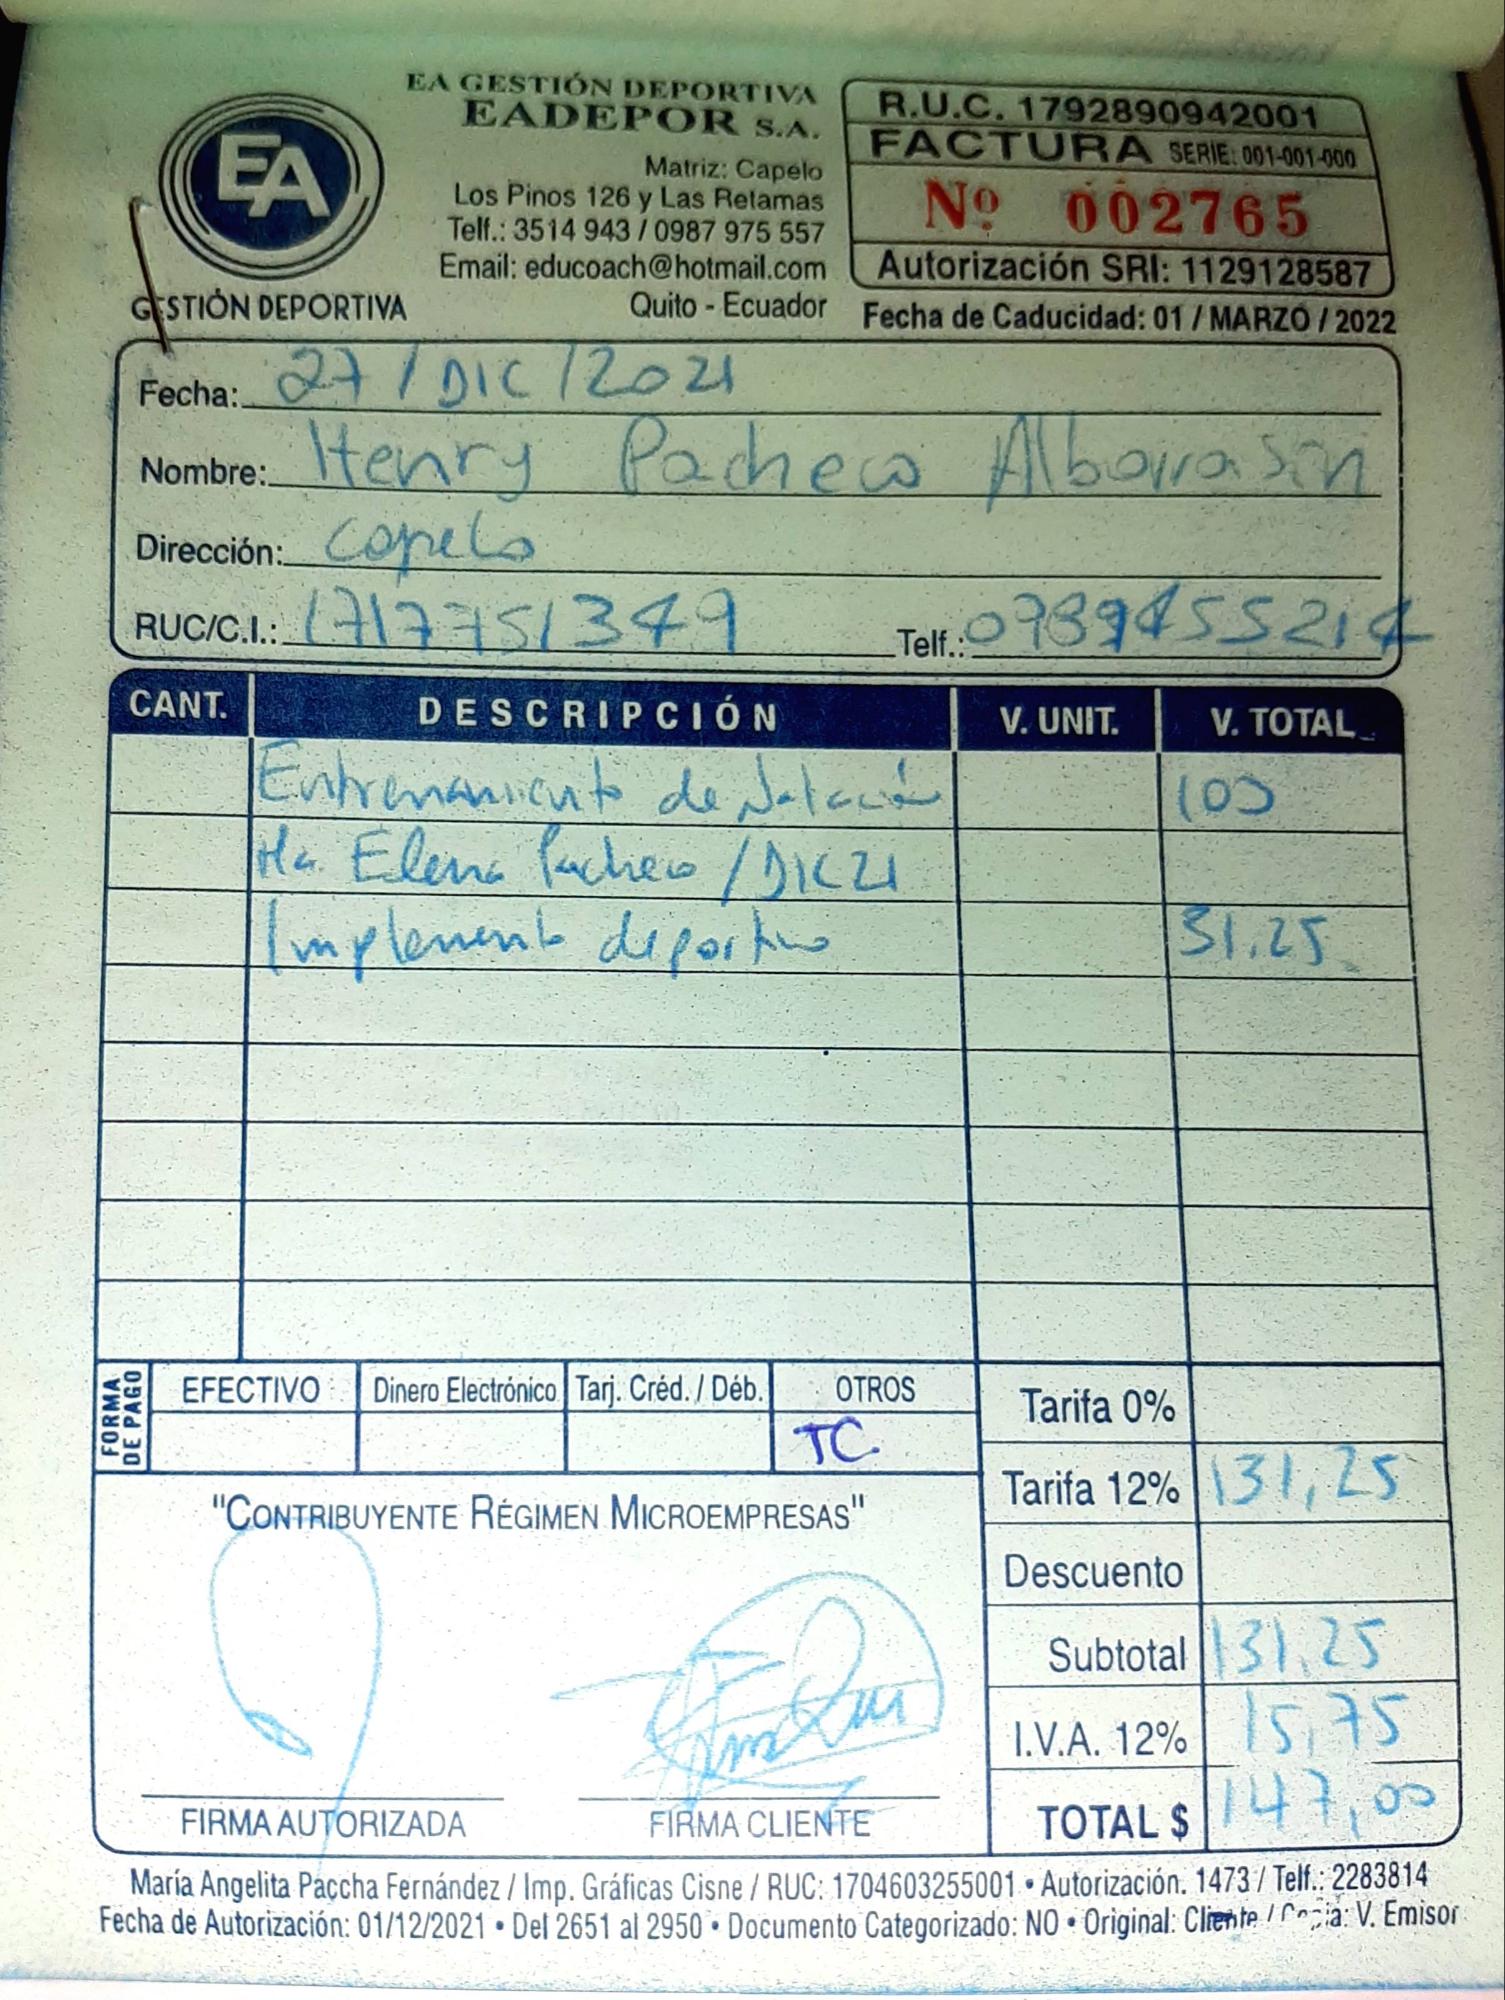 EA GESTIÓN DEPORTIVA
EADEPOR S.A.
Matriz: Capelo
Los Pinos 126 y Las Retamas
Telf.: 3514 943 / 0987 975 557
Email: educoach@hotmail.com
Quito - Ecuador
EA
GESTIÓN DEPORTIVA
R.U.C. 1792890942001
FACTURA SERIE: 001-001-000
Nº 002765
Autorización SRI: 1129128587
Fecha de Caducidad: 01 / MARZO / 2022
Fecha: 27 / DIC / 2021
Nombre: Henry Pacheco Albarrasin
Dirección: Capelo
RUC/C.I.: 1717751349 Telf.: 0989455214
CANT. DESCRIPCIÓN V. UNIT. V. TOTAL
Entrenamiento de Natación 100
Ma. Elena Pacheco / DIC 21
Implemento deportivo 31.25
FORMA DE PAGO
EFECTIVO Dinero Electrónico Tarj. Créd. / Déb. OTROS
TC.
Tarifa 0%
Tarifa 12% 131,25
Descuento
Subtotal 131.25
I.V.A. 12% 15,75
TOTAL $ 147,00
"CONTRIBUYENTE RÉGIMEN MICROEMPRESAS"
FIRMA AUTORIZADA FIRMA CLIENTE
María Angelita Paccha Fernández / Imp. Gráficas Cisne / RUC: 1704603255001 • Autorización. 1473 / Telf.: 2283814
Fecha de Autorización: 01/12/2021 • Del 2651 al 2950 • Documento Categorizado: NO • Original: Cliente / Copia: V. Emisor